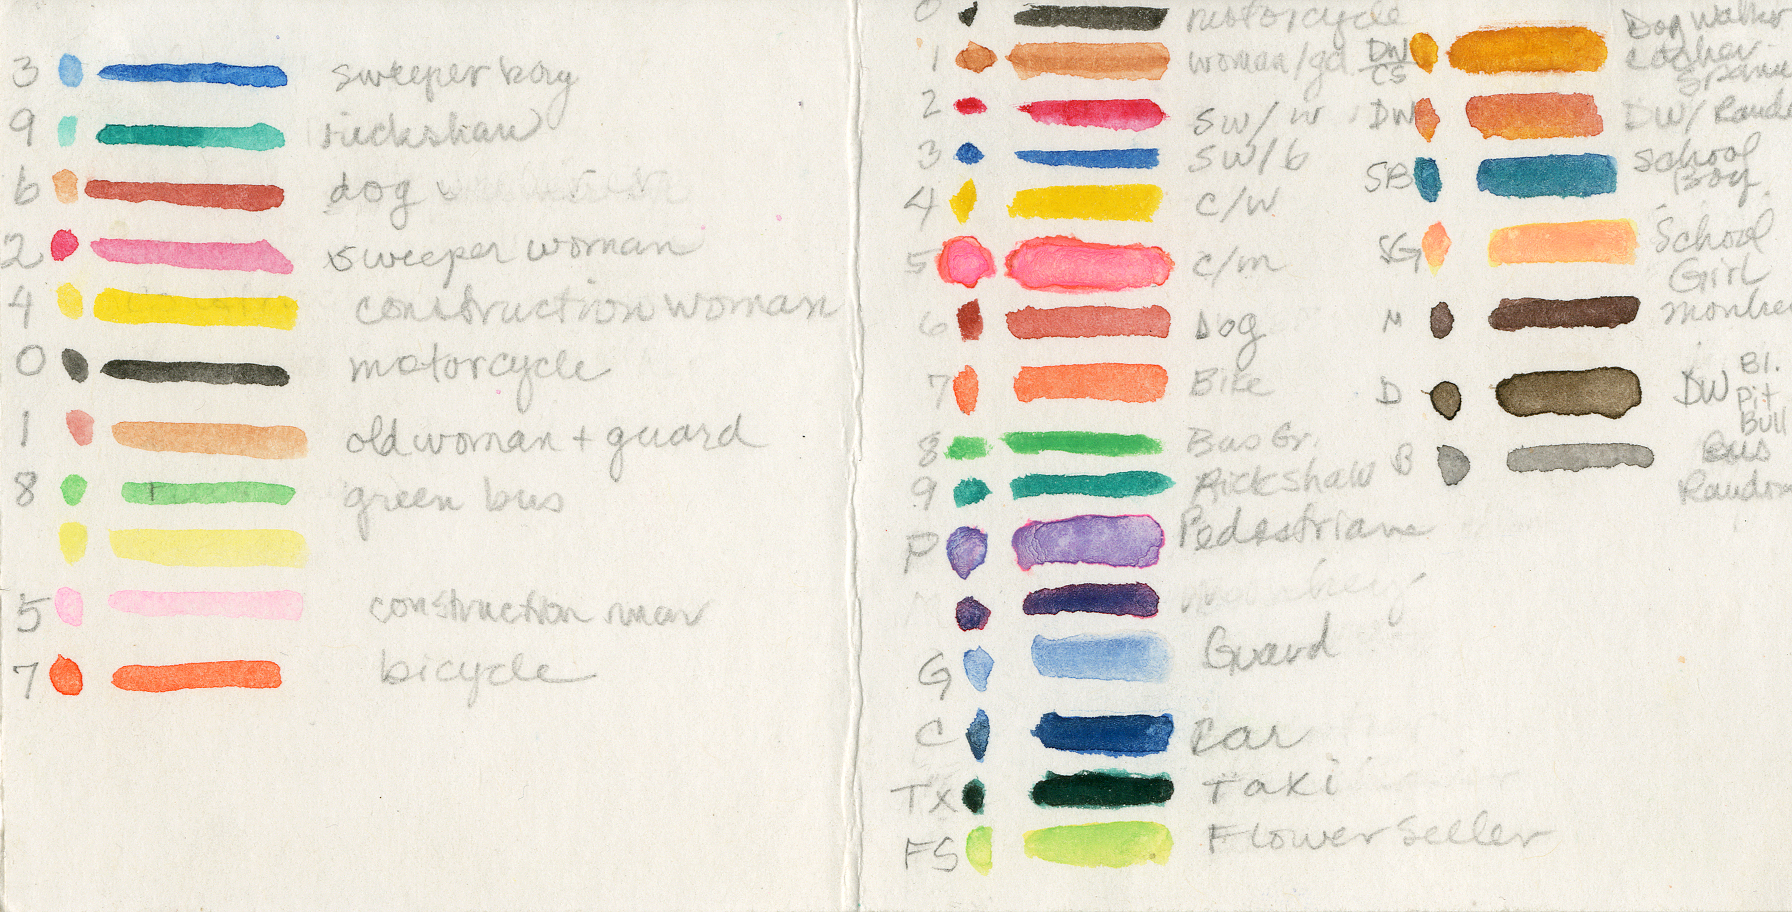 3 sweeper boy
9 rickshaw
6 dog
2 sweeper woman
4 construction woman
0 motorcycle
1 old woman + guard
8 green bus
5 construction man
7 bicycle
0 motorcycle
1 woman/gd
2 sw/w
3 sw/b
4 c/w
5 c/m
6 Dog
7 Bike
8 Bus Gr.
9 Rickshaw
P Pedestrians
M monkey
G Guard
C Car
Tx Taxi
FS Flower Seller
DW CS Dog Walker
DW DW/
SB School
Boy
SG School
Girl
M
D DW Bl.
Pit
Bull
B Bus
Random